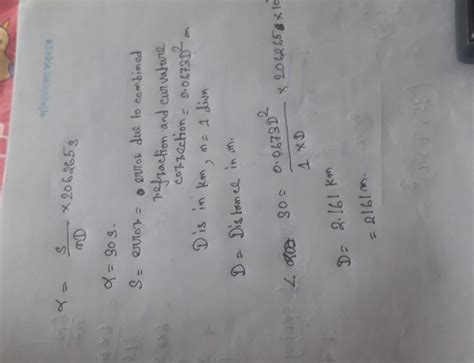 α = S/nD × 206265 s
α = 30 s.
S = error = error due to combined
refraction and curvature
correction = 0.0673D² m
D is in km, n = 1 divn
D = Distance in m.
30 = 0.0673D²/1 × D × 206265 × 10
D = 2.161 km
= 2161 m.